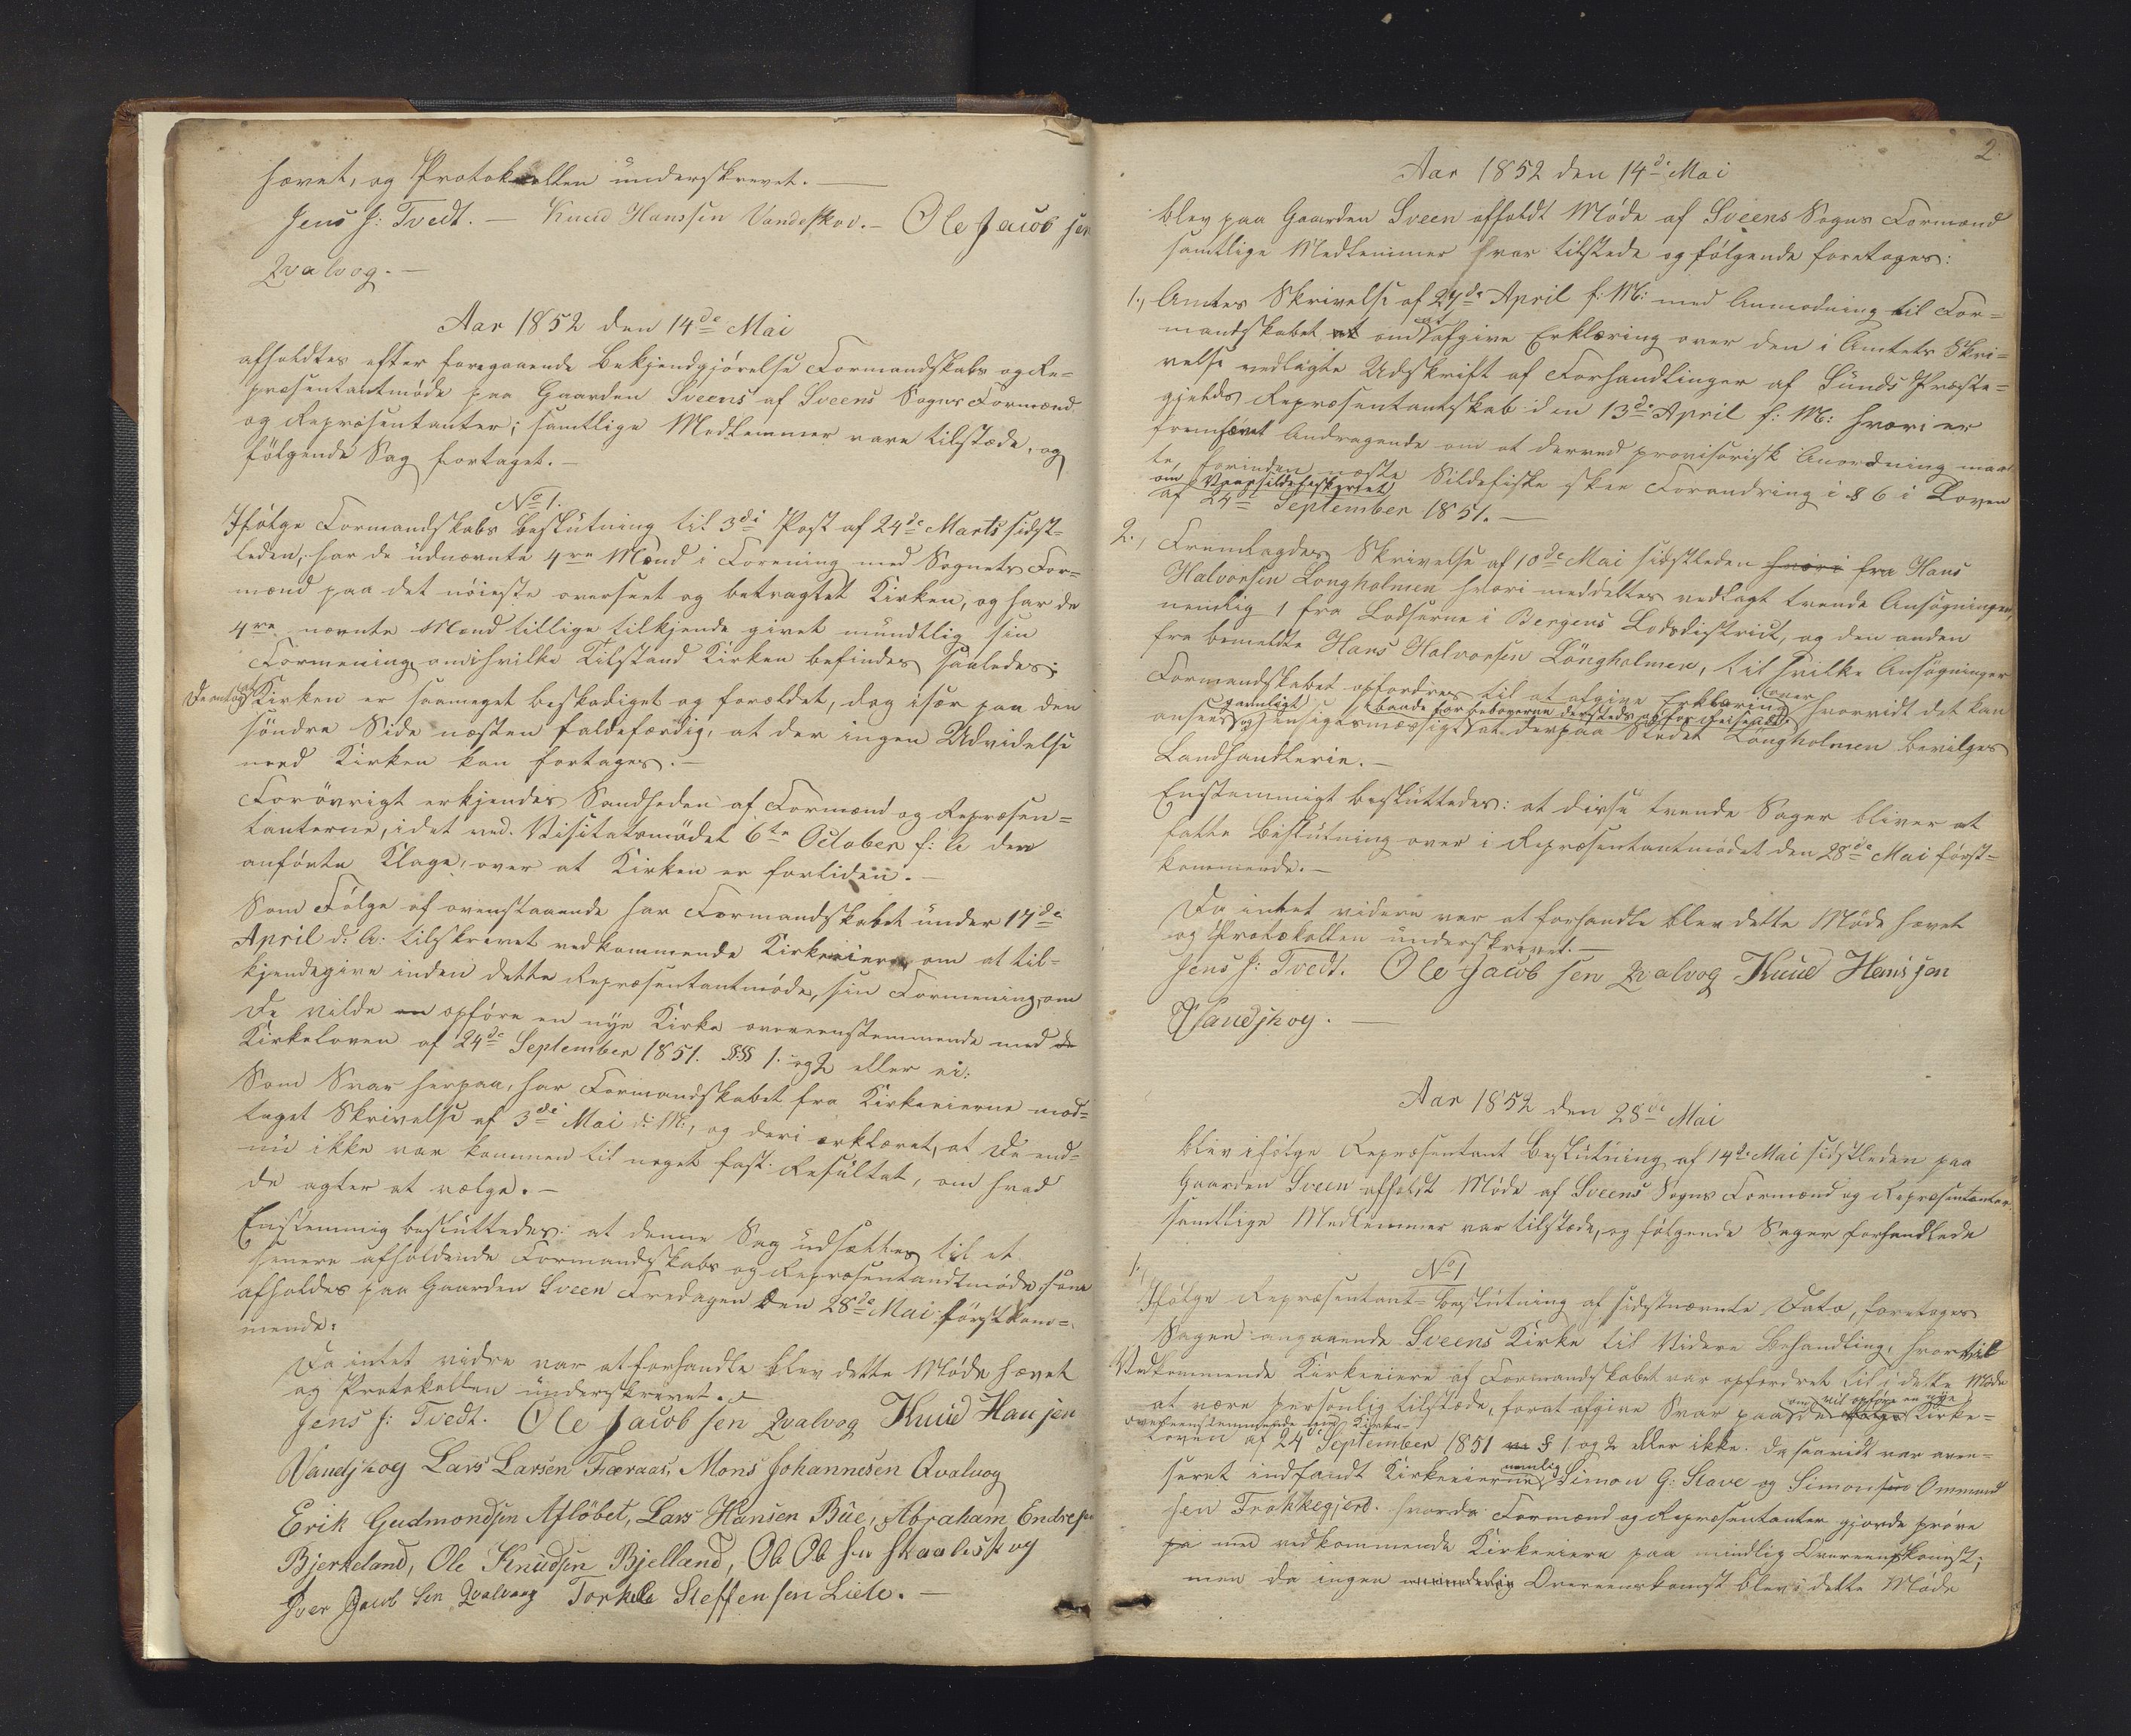 hævet, og Protokollen underskrevet. —
Jens J: Tvedt. — Knud Hanssen Vandeskov. — Ole Jacob sen
Qvalvog. —
Aar 1852 den 14de Mai
afholdtes efter foregaaende Bekjendgjørelse Formandskabs og Re=
præsentantmøde paa Gaarden Sveens af Sveens Sogns Formænd
og Repræsentanter; samtlige Medlemmer vare tilstæde, og
følgende Sag fortaget. —
No 1.
Ifølge Formandskabs Beslutning til 3die Post af 24de Marts sidst=
leden, har de udnævnte 4re Mænd i Forening med Sognets For=
mænd paa det nøieste overseet og betragtet Kirken, og har de
4re nævnte Mænd tillige tilkjende givet mundtlig sin
Formening om i hvilke Tilstand Kirken befindes saaledes:
De antog at Kirken er saameget beskadiget og forældet, dog især paa den
søndre Side næsten faldefærdig, at der ingen Udvidelse
med Kirken kan fortages. —
Forøvrigt erkjendes Sandheden af Formænd og Repræsen=
tanterne, idet ved Visitatsmødet 6te October f: A den
anførte Klage, over at Kirken er forliden. —
Som Følge af ovenstaaende har Formandskabet under 17de
April d: A: tilskrevet vedkommende Kirkeeiere om at til=
kjendegive inden dette Repræsentantmøde, sin Formening, om
De vilde en opføre en nye Kirke overeenstemmende med de
Kirkeloven af 24de September 1851. §§§ 1. og 2 eller ei:
Som Svar herpaa, har Formandskabet fra Kirkeeierne mod=
taget Skrivelse af 3die Mai d: M:, og deri erklæret, at De end=
nu ikke var kommen til noget fast Resultat, om hvad
de agter at vælge. —
Enstemmig besluttedes: at denne Sag udsættes til et
senere afholdende Formandskabs og Repræsentandtmøde, som
afholdes paa Gaarden Sveen Fredagen den 28de Mai førstkom=
mende:
Da intet vidre var at forhandle blev dette Møde hævet
og Protokollen underskrevet. —
Jens J: Tvedt. Ole Jacob sen Qvalvog Knud Han sen
Vandskog Lars Larsen Færaas, Mons Johannesen Qvalvog
Erik Gudmondsen Afløbet, Lars Hansen Büe, Abraham Endresen
Bjerkeland, Ole Knudsen Bjelland, Ole Ole sen Skaaleskog
Iver Jacob Sen Qvalvaag Torkele Steffen sen Liele. —
2.
Aar 1852 den 14de Mai
blev paa Gaarden Sveen afholdt Møde af Sveens Sogns Formænd
samtlige Medlemmer hvar tilstede og følgende foretoges:
1., Amtes Skrivelse af 27de April f: M: med Anmodning til For=
mandskabet at om at afgive Erklæring over den i Amtets Skri=
velse vedlagte Udskrift af Forhandlinger af Sunds Præste=
gjelds Repræsentantskab den 13de April f: M: hvori er
fremhævet Andragende om at derved provisorisk Anordning maat
te, forinden næste Sildefiske skee Forandring i § 6 i Loven
om Vaarsildefiskeriet
af 24de September 1851. —
2., Fremlagdes Skrivelse af 10de Mai sidstleden hvori fra Hans
Halvorsen Longholmen hvori meddeltes vedlagt tvende Ansøgninger,
nemlig 1 fra Lodserne i Bergens Lodsdistrict, og den anden
fra bemeldte Hans Halvorsen Lóngholmen, til hvilke Ansøgninger
Formandskabet opfordres til at afgive Erklæring over hvorvidt det kan
ansees gavnligt og hensigtsmæssigt baade for Beboerne dersteds og for Reisende at derpaa Stedet Lóngholmen bevilges
Landhandlerie. —
Enstemmigt besluttedes: at disse tvende Sager bliver at
fatte Beslutning over i Repræsentantmødet den 28de Mai først=
kommende. —
Da intet videre var at forhandle blev dette Møde hævet
og Protokollen underskrevet. —
Jens J: Tvedt. Ole Jacob sen Qvalvog Knud Hans sen
Vandskog. —
Aar 1852 den 28de Mai
blev ifølge Repræsentant Beslutning af 14de Mai sidstleden paa
Gaarden Sveen afholdt Møde af Sveens Sogns Formænd og Repræsentanter
samtlige Medlemmer var tilstæde, og følgende Sager forhandlede
1., No 1
Ifølge Repræsentant= Beslutning af sidstnævnte Dato, foretoges
Sagen angaaende Sveens Kirke til Videre Behandling, hvortil
Vedkommende Kirkeeiere af Formandskabet var opfordret til i dette Møde
at være personlig tilstæde, forat afgive Svar paa om de vil opføre en nye Kirke=
overeenstemmende Kirke=
Loven af 24de September 1851 § 1 og 2 eller ikke. Da saavidt var aven=
seret indfandt Kirkeeierne nemlig Simon G: Stave og Simonsen Ommund
sen Frakkegjerd. hvorda Formænd og Repræsentanter gjorde prøve
pa med vedkommende Kirkeeiere paa mindlig Overeenskomst;
men da ingen Overeenskomst blev i dette Møde